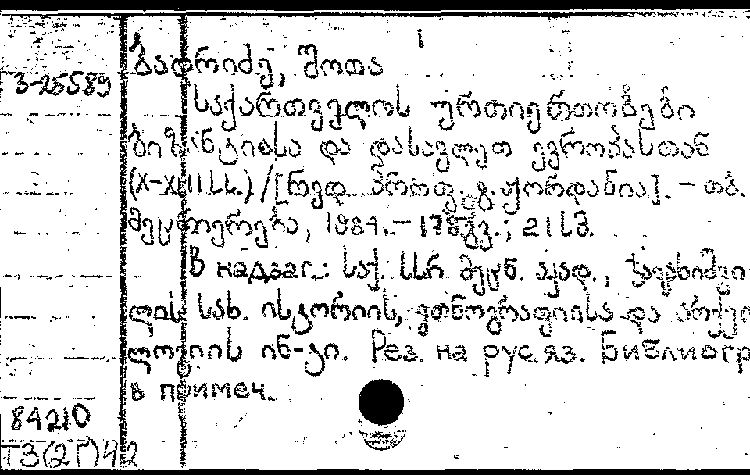 ბადრიძე, შოთა
3-25589
საქართველოს ურთიერთობები
ბიზანტიასა და დასავლეთ ევროპასთან
(X-XIIIსს.) /[რედ. პროფ. გ. ჟორდანია]. – თბ.
მეცნიერება, 1984. – 178გვ.; 21სმ.
В надзаг.: საქ. სსრ მეცნ. აკად., ჯავახიშვი
ლის სახ. ისტორიის, ეთნოგრაფიისა და არქეო
ლოგიის ინ-ტი. Рез. на рус. яз. Библиогр
в примеч.
84210
Т3(2Г)42